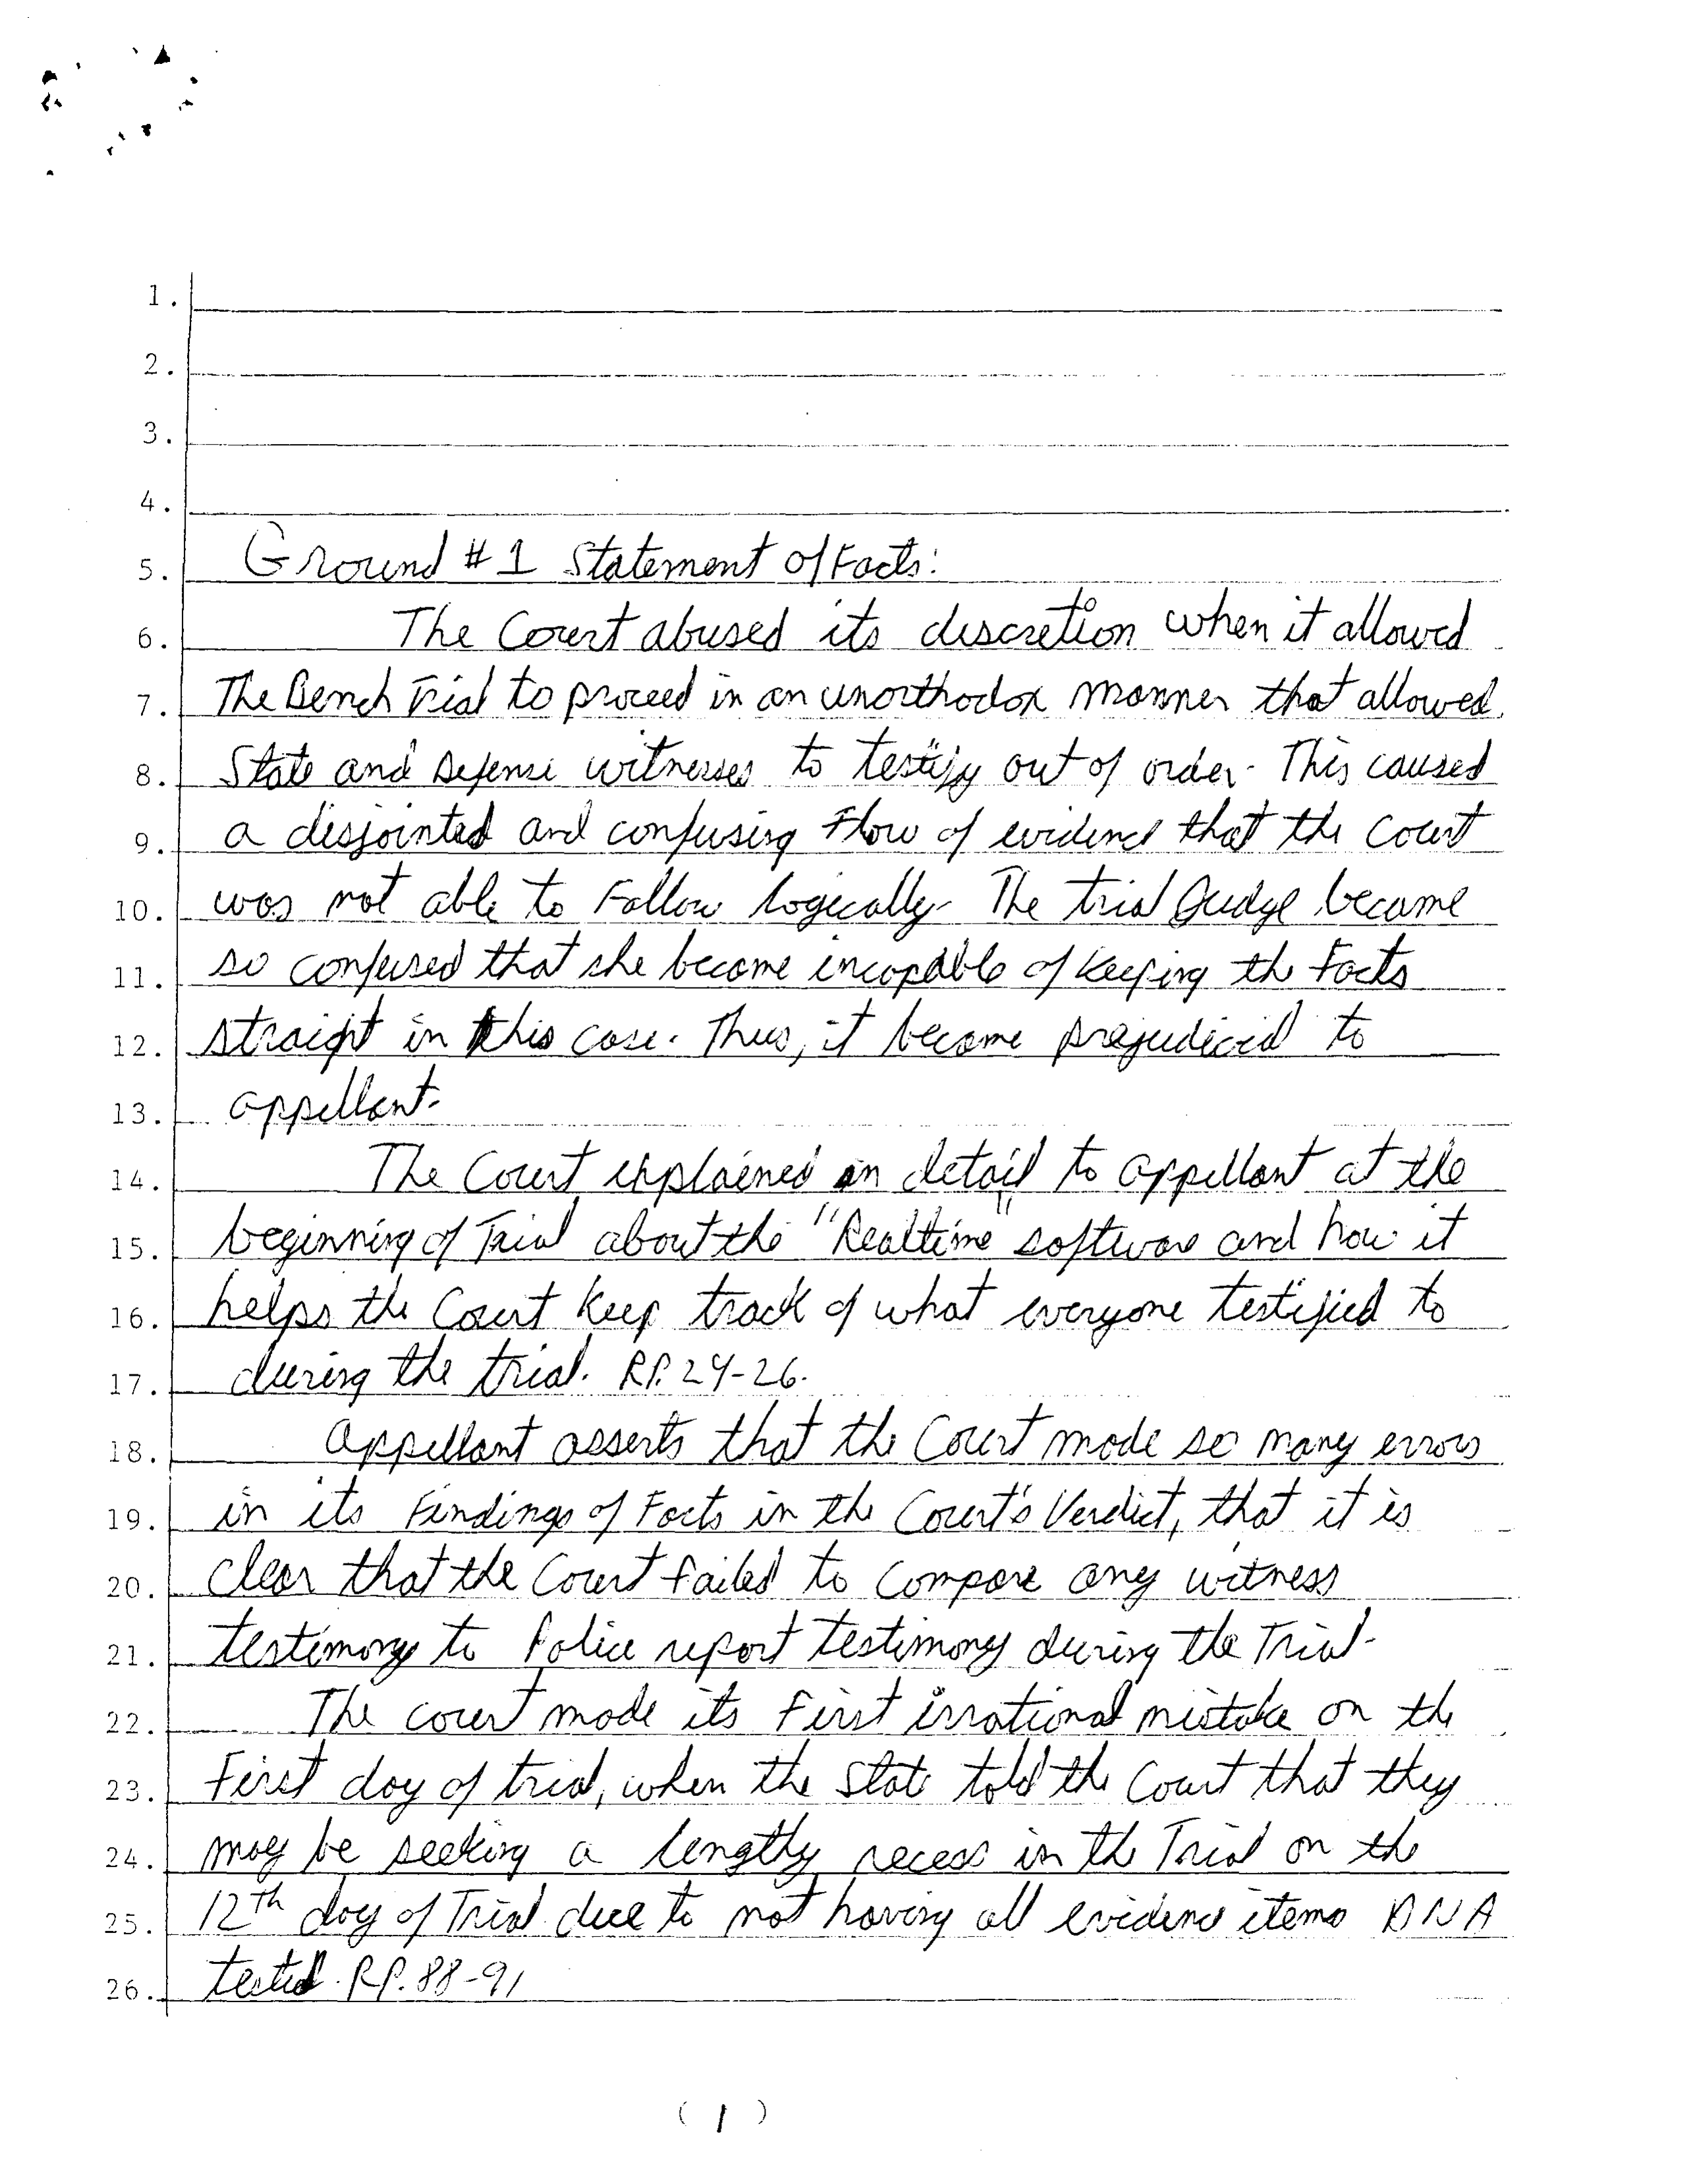 1.
2.
3.
4.
5. Ground #1 Statement of Facts:
6. The Court abused its discretion when it allowed
7. The Bench Trial to proceed in an unorthodox manner that allowed
8. State and Defense witnesses to testify out of order. This caused
9. a disjointed and confusing Flow of evidence that the Court
10. was not able to Follow logically. The trial Judge became
11. so confused that she became incapable of keeping the Facts
12. straight in this case. Thus, it became prejudicial to
13. appellant.
14. The Court explained in detail to appellant at the
15. beginning of Trial about the "Realtime" software and how it
16. helps the Court keep track of what everyone testified to
17. during the trial. RP. 24-26.
18. Appellant asserts that the Court made so many errors
19. in its Findings of Facts in the Court's Verdict, that it is
20. clear that the Court failed to compare any witness
21. testimony to Police report testimony during the Trial.
22. The court made its First irrational mistake on the
23. First day of trial, when the State told the Court that they
24. may be seeking a lengthy recess in the Trial on the
25. 12th day of Trial due to not having all evidence items DNA
26. tested. RP. 88-91
( 1 )